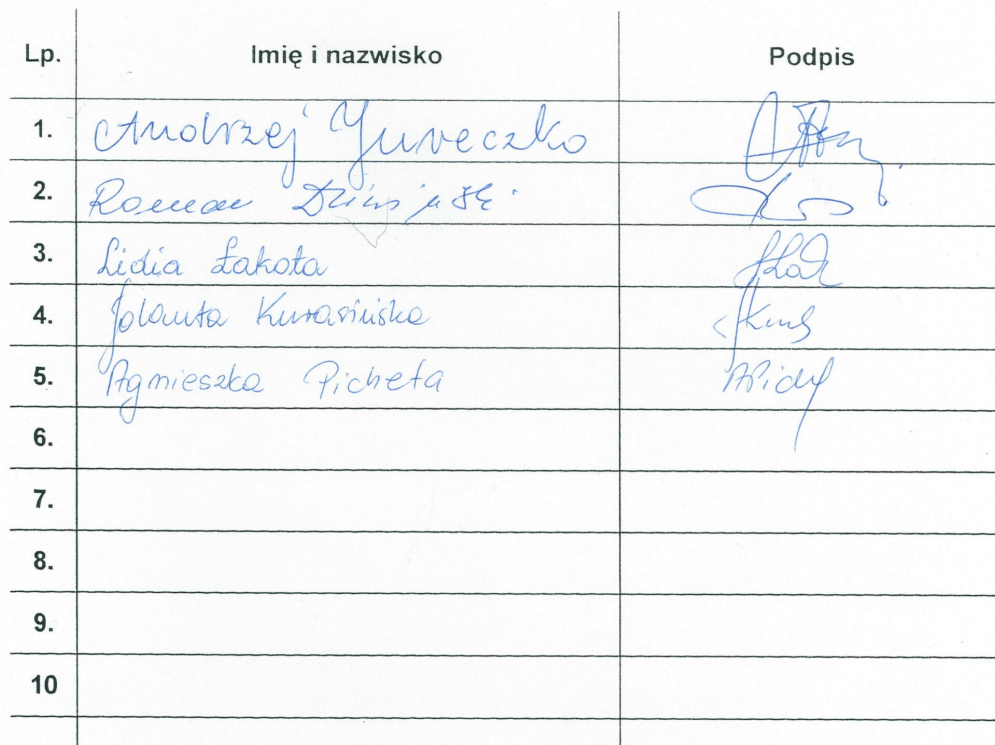 Lp. Imię i nazwisko Podpis
1. Andrzej Jureczko
2. Roman
3. Lidia Łakota
4. Jolanta Kurasińska
5. Agnieszka Picheta
6.
7.
8.
9.
10